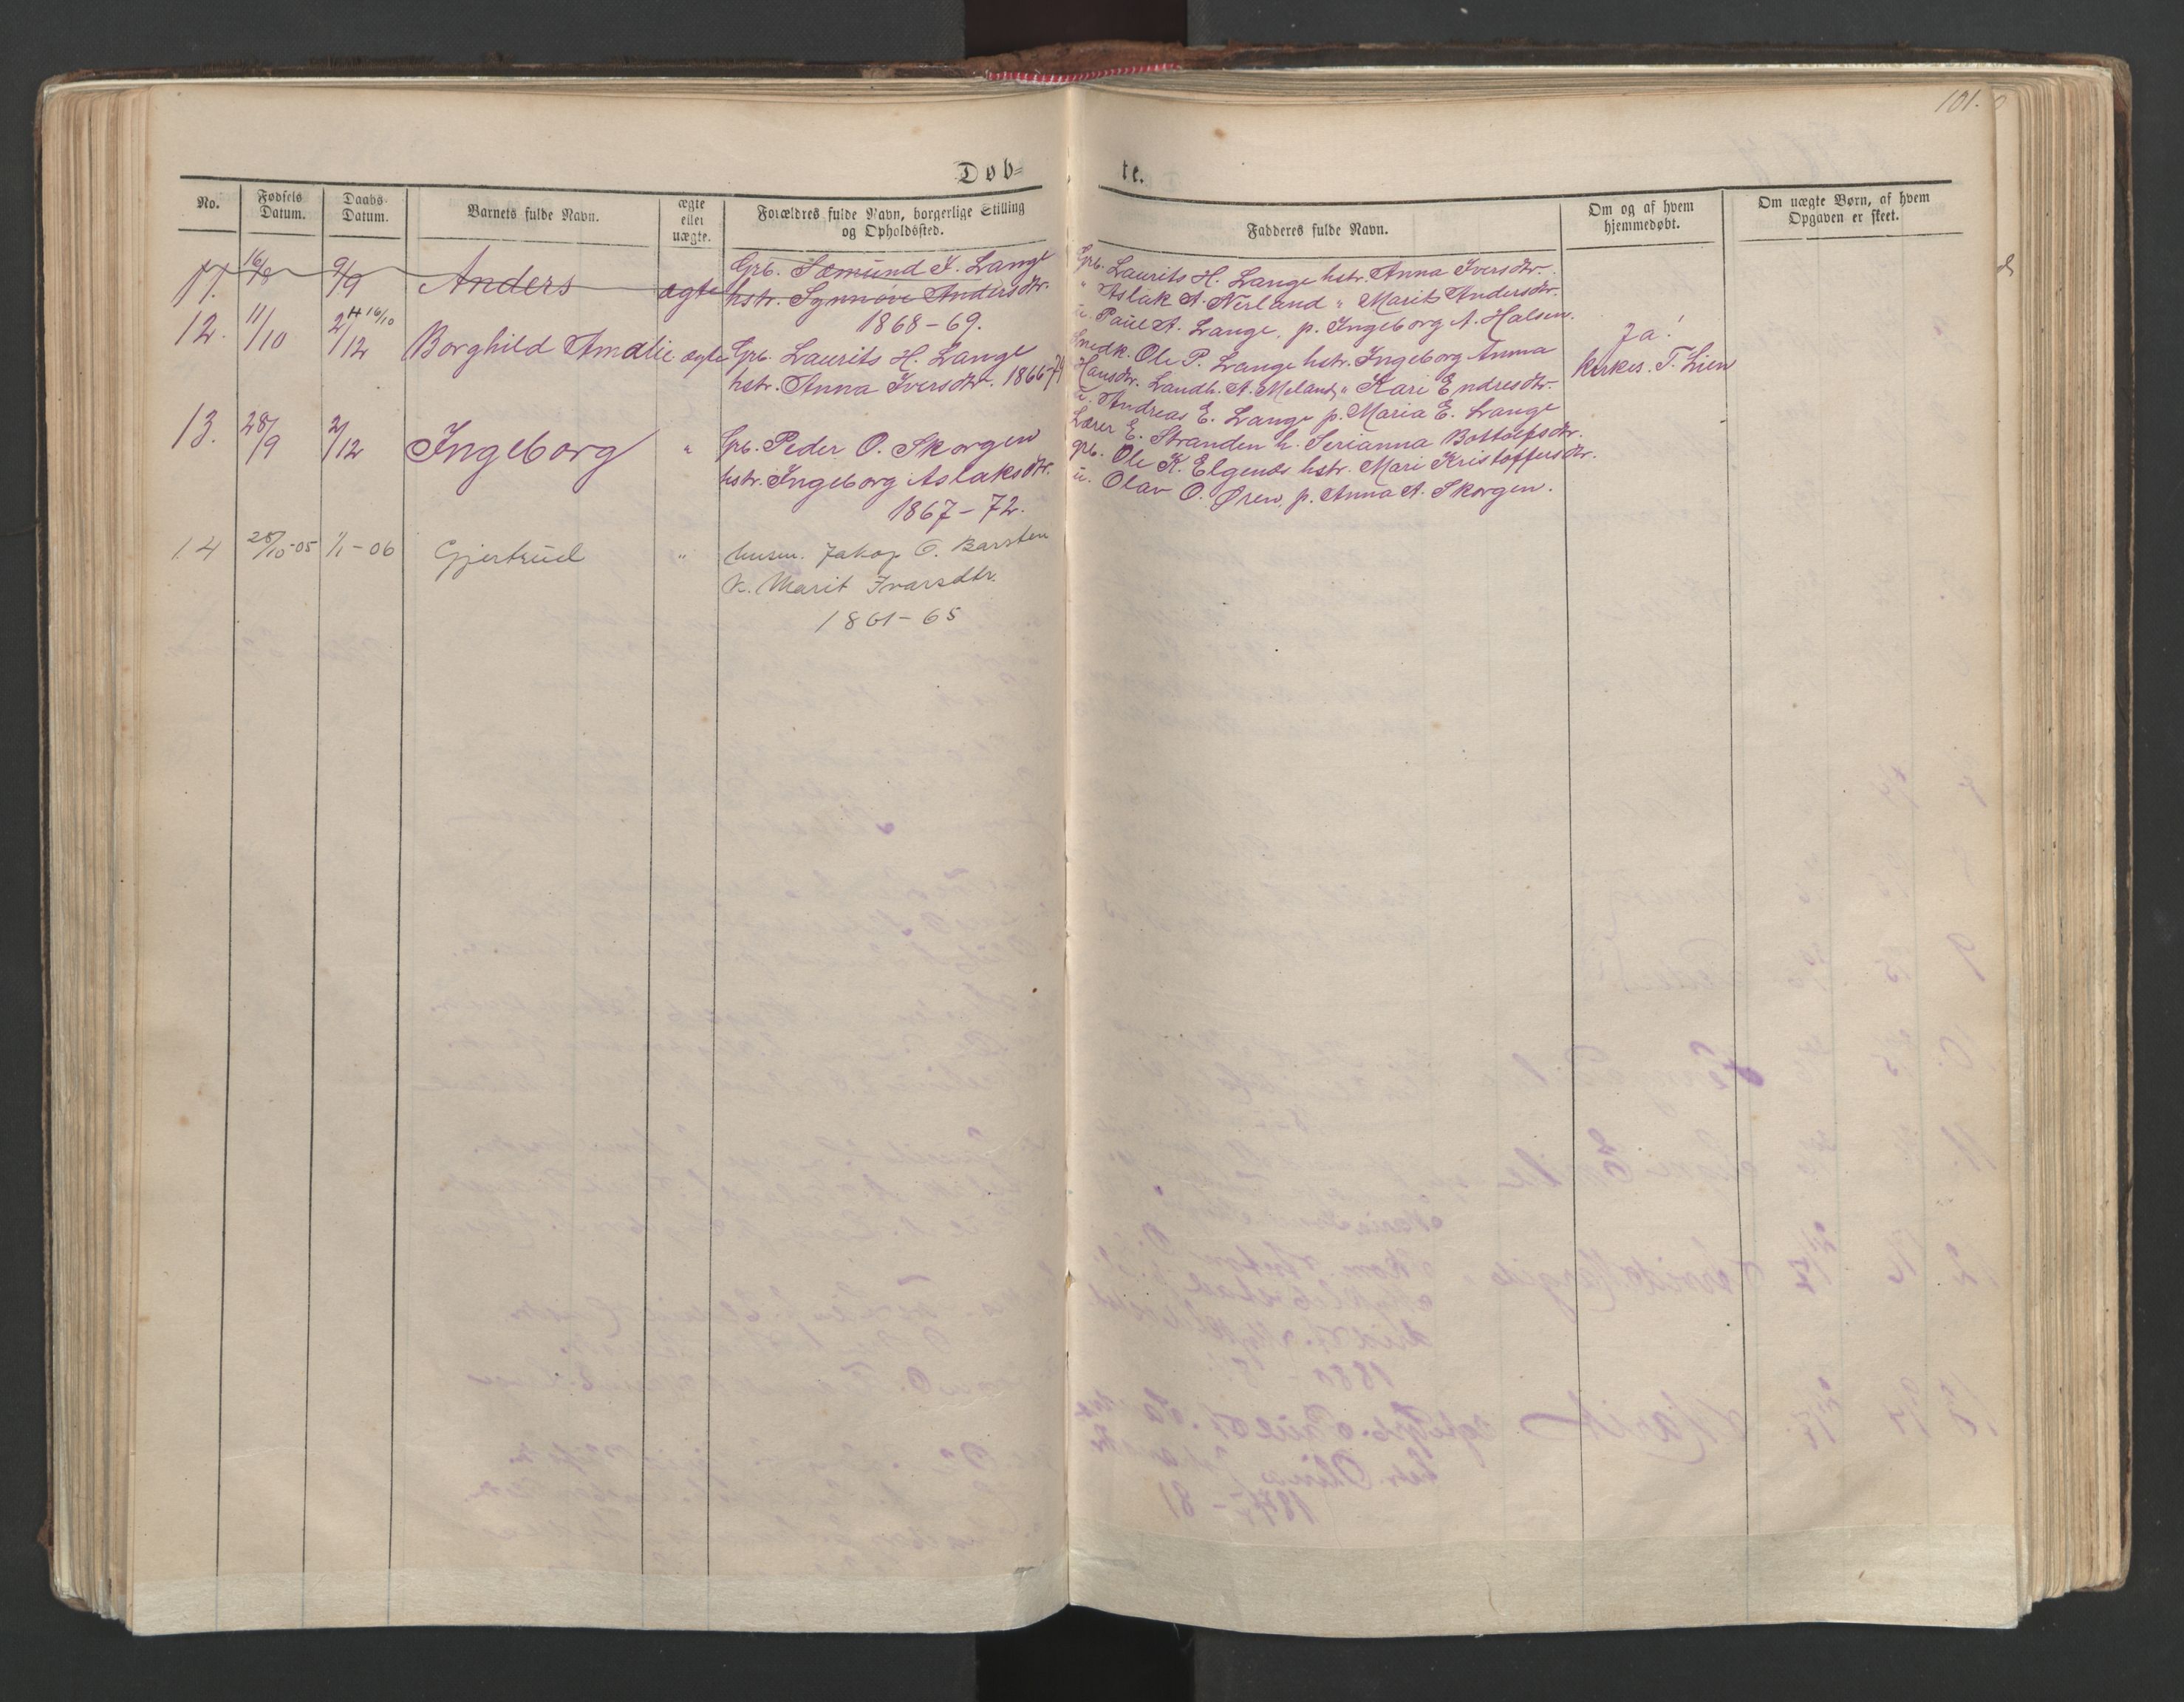 101.
Døb=
te.
No.
Fødsels Datum.
Daabs-Datum.
Barnets fulde Navn.
ægte eller uægte.
Forældres fulde Navn, borgerlige Stilling og Opholdssted.
Fadderes fulde Navn.
Om og af hvem hjemmedøbt.
Om uægte Børn, af hvem Opgaven er skeet.
11. 16/8 9/9 Anders ægte Grb. Sæmund I. Lange
hstr. Synnøve Andersdtr.
1868-69.
Grb. Laurits H. Lange hstr. Anna Iversdtr.
" Aslak A. Nerland " Marit Andersdtr.
u. Paul A. Lange, p. Ingeborg A. Halsen.
12. 11/10 2/12 H 16/10 Borghild Amalie ægte Grb. Laurits H. Lange
hstr. Anna Iversdtr. 1866-74
Snedk. Ole P. Lange hstr. Ingeborg Anna
Hansdtr. Landh. A. Meland, " Kari Endresdtr.
u. Andreas E. Lange p. Maria E. Lange
Ja!
kirkes. T. Lien
13. 28/9 2/12 Ingeborg " Grb. Peder O. Skorgen
hstr. Ingeborg Aslaksdtr.
1867-72.
Lærer E. Stranden h. Serianna Bottolfsdtr.
grb. Ole K. Elgenes hstr. Mari Kristoffersdtr.
u. Olav O. Øren, p. Anna A. Skorgen.
14 28/10-05 1/1-06 Gjertrud " husm. Jakop O. Barsten
k. Marit Ivarsdtr.
1861-65